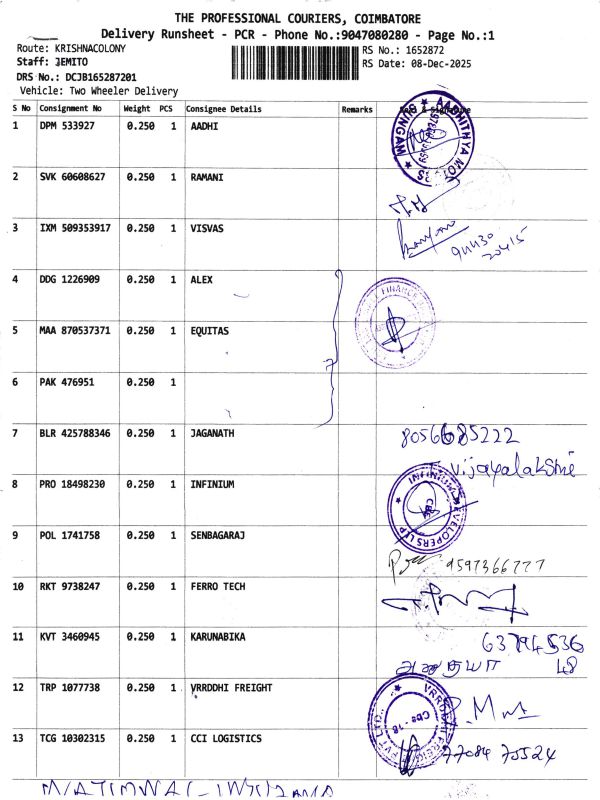 THE PROFESSIONAL COURIERS, COIMBATORE
Delivery Runsheet - PCR - Phone No.:9047080280 - Page No.:1
Route: KRISHNACOLONY
RS No.: 1652872
Staff: JEMITO
RS Date: 08-Dec-2025
DRS No.: DCJB165287201
Vehicle: Two Wheeler Delivery
S No Consignment No Weight PCS Consignee Details Remarks
1 DPM 533927 0.250 1 AADHI
AADHITHYA
2 SVK 60608627 0.250 1 RAMANI
3 IXM 509353917 0.250 1 VISVAS
94430
20415
4 DDG 1226909 0.250 1 ALEX
FINANCE
5 MAA 870537371 0.250 1 EQUITAS
6 PAK 476951 0.250 1
7 BLR 425788346 0.250 1 JAGANATH
8056685222
vijayalakshmi
8 PRO 18498230 0.250 1 INFINIUM
INFINIUM DEVELOPERS LLP
CBE
9 POL 1741758 0.250 1 SENBAGARAJ
9597366777
10 RKT 9738247 0.250 1 FERRO TECH
11 KVT 3460945 0.250 1 KARUNABIKA
63794536
48
12 TRP 1077738 0.250 1 VRRDDHI FREIGHT
VRRDDHI FREIGHT PVT LTD.
Cbe-18
13 TCG 10302315 0.250 1 CCI LOGISTICS
77084 70524